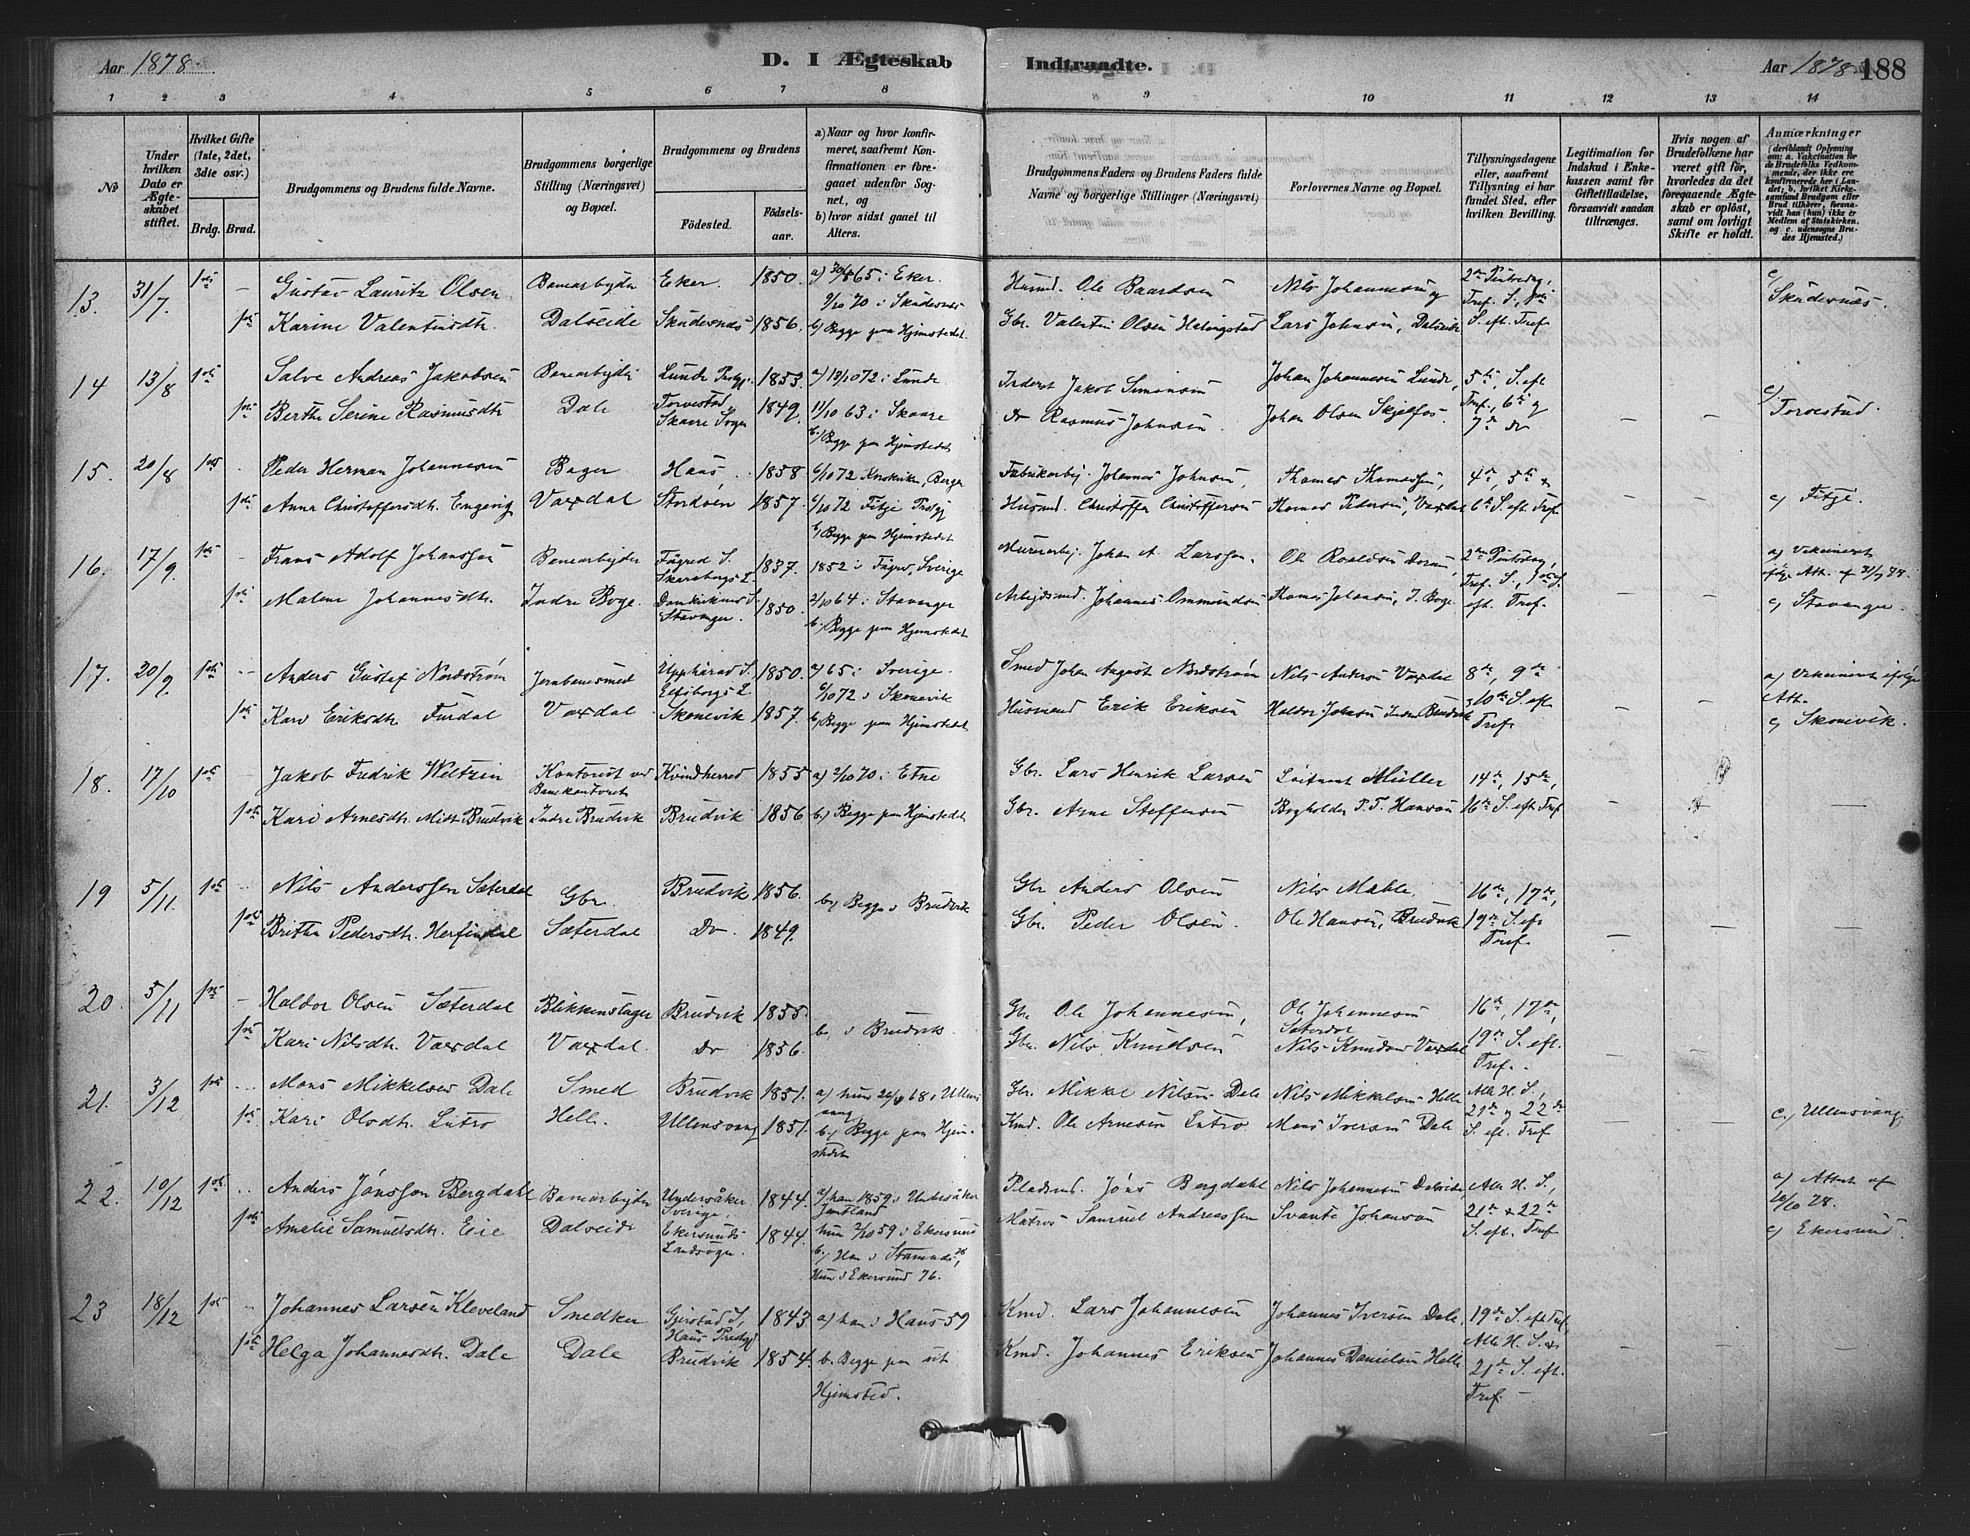 Aar 1878. D. I Ægteskab Indtraadte. Aar 1878 188
1 2 3 4 5 6 7 8 8 9 10 11 12 13 14
No
Under hvilken Dato er Ægteskabet stiftet.
Hvilket Gifte (1ste, 2det, 3die osv.)
Brdg. Brud.
Brudgommens og Brudens fulde Navne.
Brudgommens borgerlige Stilling (Næringsvei) og Bopæl.
Brudgommens og Brudens
Fødested. Fødselsaar.
a) Naar og hvor konfirmeret, saafremt Konfirmationen er foregaaet udenfor Sognet, og
b) hvor sidst gaaet til Alters.
Brudgommens Faders og Brudens Faders fulde Navne og borgerlige Stillinger (Næringsvei)
Forlovernes Navne og Bopæl.
Tillysningsdagene eller, saafremt Tillysning ei har fundet Sted, efter hvilken Bevilling.
Legitimation for Indskud i Enkekassen samt for Giftetilladelse, forsaavidt saadan tiltrænges.
Hvis nogen af Brudefolkene har været gift før, hvorledes da det foregaaende Ægteskab er opløst, samt om lovligt Skifte er holdt.
Anmærkninger (deriblandt Oplysning om: a. Vakcination for de Brudefolks Vedkommende, der ikke ere konfirmerede her i Landet; b. hvilket Kirkesamfund Brudgom eller Brud tilhører, forsaavidt han (hun) ikke er Medlem af Statskirken, og c. udensogns Brudes Hjemsted.)
13. 31/7. 1ste – Gustav Lauritz Olsen Banearbejder Eker. 1850. a) 65 i Eker. Husmd. Ole Baardsen Nils Johannesen og c)
1ste Karine Valentinsdtr. Dalseide Skudesnæs 1856. 2/10 70 i Skudesnæs Gbr. Valentin Olsen Lars Johnsen, Dalseide S. eft. Tref. Skudesnæs.
b) Begge paa Hjemstedet.
14 13/8 1ste Salve Andreas Jakobsen Banearbejder Lunde Prstgj. 1853. a) 13/10 72 i Lunde Inderst Jakob Simonsen Johan Johannesen Lunde, 5te, S. eft c)
1ste Berthe Serine Rasmusdtr. Dale Torvestad Skaare Sogn 1849. 11/10 63 i Skaare Do Rasmus Johnsen. Johan Olsen Skjelfos. Tref., 6te og 7de do – – Torvestad.
b) Begge paa Hjemstedet
15. 20/8 1ste Peder Herman Johannesen Bager Haus 1858 6/10 72 Korskirken, Bergen Fabrikarbej. Johannes Johnsen, Thomas Thomassen, 4de, 5te &
1ste Anna Christoffersdtr. Engevig Vaxdal Stordøen 1857. 6/10 72 Fitje Prstgj Husmd. Christoffer Christoffersen Thomas Pedersen, Vaxdal 6te S. eft Tref. – – c) Fitje.
b) Begge paa Hjemstedet
16. 17/9. 1ste Frans Adolf Johansson Banearbejder Fägred S. Skaraborgs L. 1837. 1852 i Fägred, Sverige Murerarbej. Johan A. Larsson. Ole Roaldsen a) Vakcineret
1ste Malene Johannesdtr. Indre Boge. Domkirkens S. Stavanger. 1850. 2/10 64 i Stavanger Arbejdsmd. Johannes Ommundsen Thomas Johansen, I. Boge. Tref. S., eft. Tref. – – c) Stavanger
b) Begge paa Hjemstedet
17. 20/9. 1ste – Anders Gustaf Nordstrøm Jernbanesmed Upphärad S. Elfsborgs L. 1850. a) 65 i Sverige. Smed Johan August Nordstrøm Nils Andersen Vaxdal 8de, 9de a) Vakcineret ifølge Att.
1ste Kari Eriksdtr. Furdal Vaxdal Skonevik 1857. 6/10 72 i Skonevik Husmand Erik Eriksen Haldor Johnsen Indre Brudvik 10de S. eft Tref. – – c) Skonevik.
b) Begge paa Hjemstedet
18. 17/10 1ste Jakob Fredrik Weltzin Kontorist ved Banekontoret Kvindherred 1855 a) 2/10 70 i Etne Gbr. Lars Henrik Larsen Løitnant Müller 14de, 15de,
1ste Kari Arnesdtr. Midt Brudvik Indre Brudvik Brudvik 1856 b) Begge paa Hjemstedet Gbr. Arne Steffensen Bogholder P. T. Hansen 16de S. eft Tref – –
19 5/11. 1ste Nils Anderssen Sæterdal Gbr. Brudvik 1856. b) Begge i Brudvik Gbr Anders Olsen Nils Mahle, 16de, 17de,
1ste Britha Pedersdtr. Herfindal Sæterdal Do. 1849. Gbr. Peder Olsen. Ole Hansen, Brudvik 19de S. eft Tref. – – –
20. 5/11 1ste – Haldor Olsen Sæterdal Blikkenslager Brudvik 1855. b) i Brudvik Gbr. Ole Johannesen, Ole Johannesen Sæterdal 16de, 17de,
1ste Kari Nilsdtr. Vaxdal Vaxdal. Do 1856. Gbr. Nils Knudsen Nils Knudsen Vaxdal 19de S. eft. Tref. – –
21. 3/12 1ste Mons Mikkelsen Dale Smed Brudvik 1851. a) hun 68 i Ullensvang Gbr. Mikkel Nilsen Dale Nils Mikkelsen Helle Alle H. S.,
1ste Kari Olsdtr. Lutro Helle. Ullensvang 1851. b) Begge paa Hjemstedet Kmd. Ole Arnesen Lutro Mons Iversen Dale 21de og 22de S. eft. Tref – – c.) Ullensvang
22. 10/12 1ste Anders Jönsson Bergdahl Banearbejder Undersåker Sverige. 1844. a) han 1859 i Undersåker Jemtland Pladsmd. Jöns Bergdahl Nils Johannesen Dalseide Alle H. S., a) Attest af 78.
1ste Amalie Samuelsdtr. Eie Dalseide Ekersunds Landsogn. 1844. hun 2/10 59 i Ekersund Matros Samuel Andreassen Svante Johanson 21de & 22de S. eft. Tref c) Ekersund.
b) Han i Hun i Ekersund 76.
23 18/12 1ste Johannes Larsen Kleveland Snedker Gjerstad S, Haus Prestgj 1843 a) han i Haus 59 Kmd. Lars Johannesen Johannes Iversen Dale, 19de S. eft Tref
1ste Helga Johannesdtr. Dale Dale Brudvik 1854. b. Begge paa sit Hjemsted. Kmd. Johannes Eriksen Johannes Danielsen Helle Alle H. S. & 21de S. eft. Tref. – – –